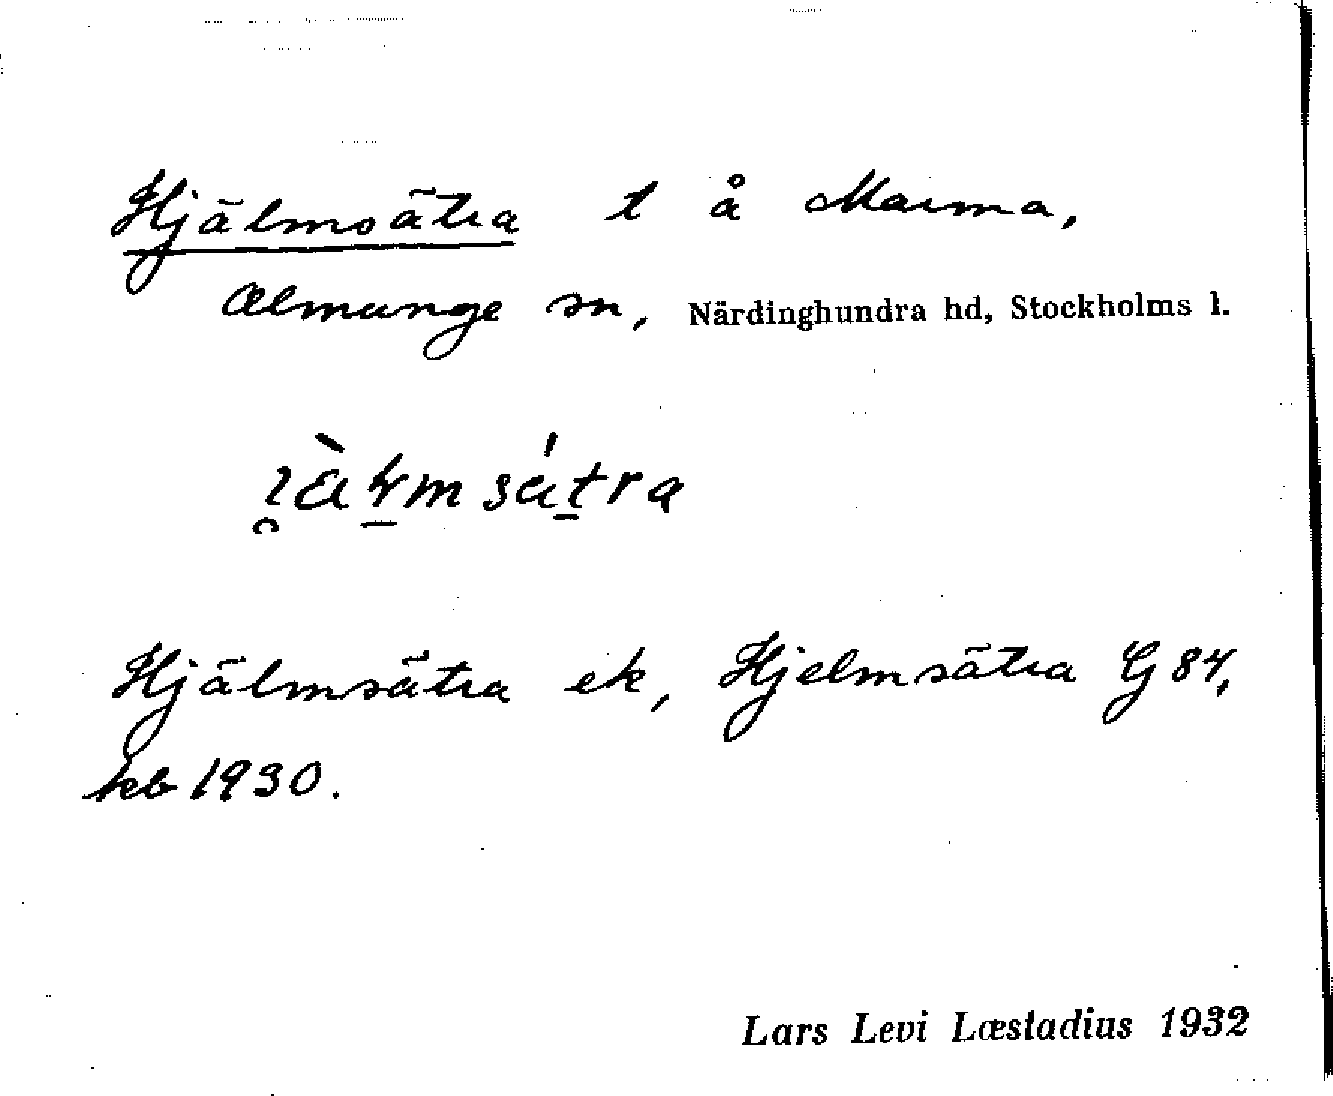 Hjälmsätra t å Marma,
Almunge sn, Närdinghundra hd, Stockholms l.
Hjälmsätra ek, Hjelmsätra G 84,
kb 1930.
Lars Levi Læstadius 1932